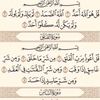 بِسْمِ اللَّهِ الرَّحْمَٰنِ الرَّحِيمِ
قُلْ هُوَ اللَّهُ أَحَدٌ اللَّهُ الصَّمَدُ لَمْ يَلِدْ
وَلَمْ يُولَدْ وَلَمْ يَكُن لَّهُ كُفُوًا أَحَدٌ
بِسْمِ اللَّهِ الرَّحْمَٰنِ الرَّحِيمِ
قُلْ أَعُوذُ بِرَبِّ الْفَلَقِ مِن شَرِّ مَا خَلَقَ وَمِن شَرِّ
غَاسِقٍ إِذَا وَقَبَ وَمِن شَرِّ النَّفَّاثَاتِ فِي الْعُقَدِ
وَمِن شَرِّ حَاسِدٍ إِذَا حَسَدَ